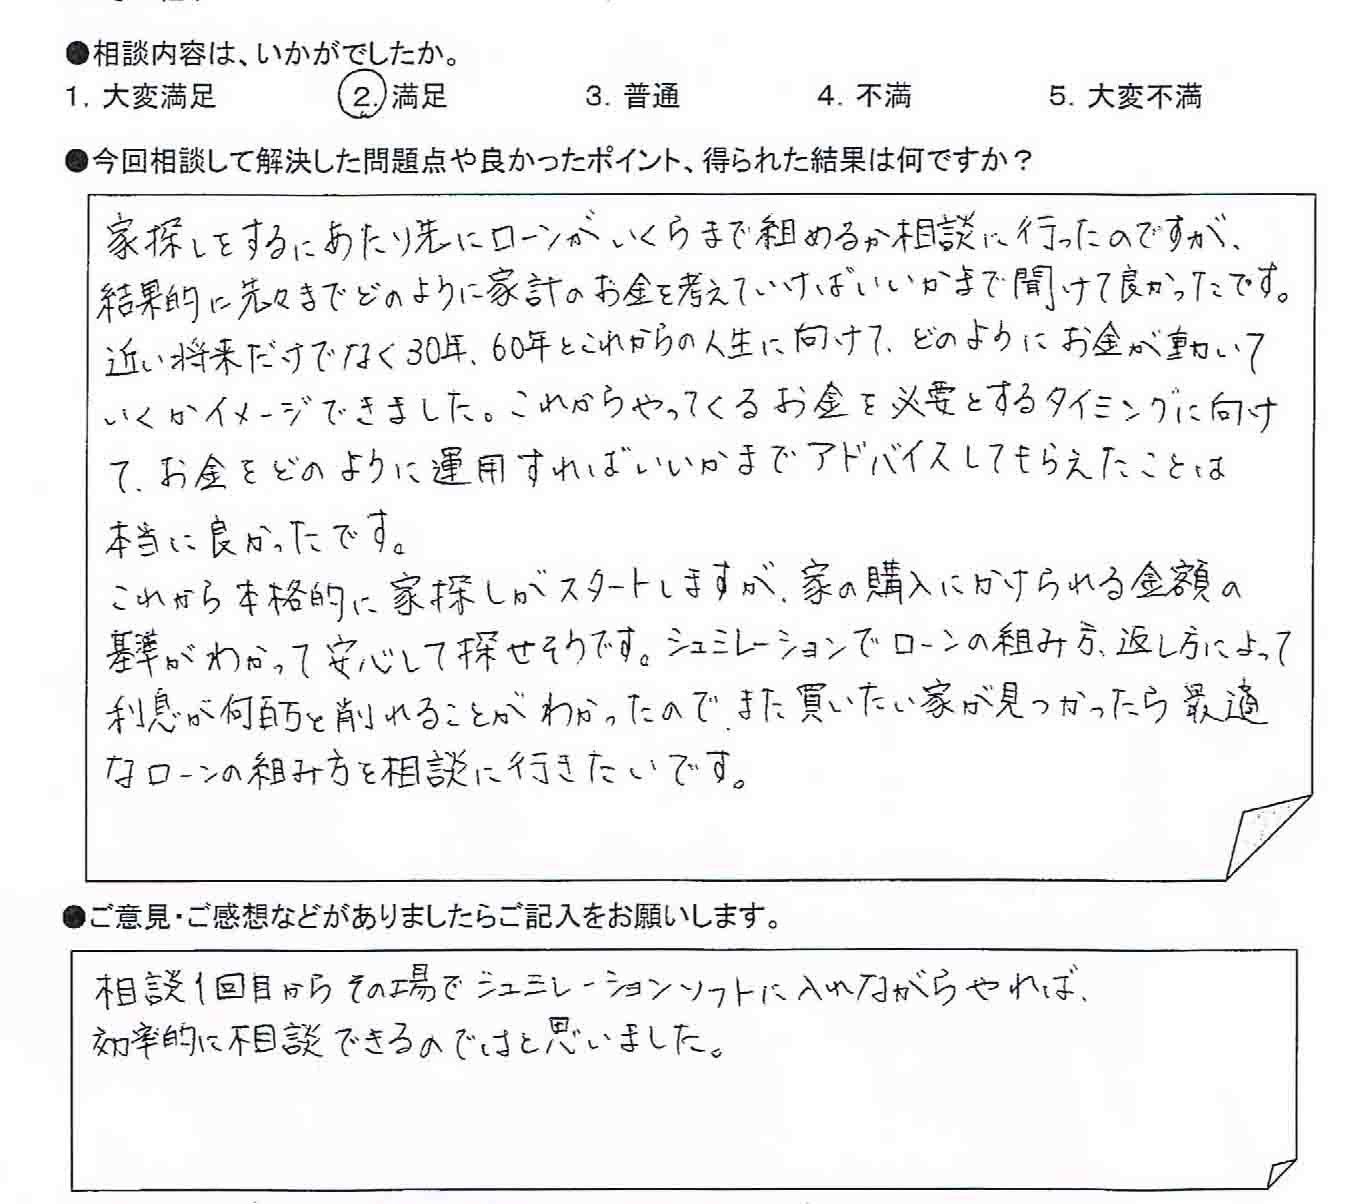 ●相談内容は、いかがでしたか。
1. 大変満足 2. 満足 3. 普通 4. 不満 5. 大変不満
●今回相談して解決した問題点や良かったポイント、得られた結果は何ですか？
家探しをするにあたり先にローンがいくらまで組めるか相談に行ったのですが、
結果的に先々までどのように家計のお金を考えていけばいいかまで聞けて良かったです。
近い将来だけでなく30年、60年とこれからの人生に向けて、どのようにお金が動いて
いくかイメージできました。これからやってくるお金を必要とするタイミングに向け
て、お金をどのように運用すればいいかまでアドバイスしてもらえたことは
本当に良かったです。
これから本格的に家探しがスタートしますが、家の購入にかけられる金額の
基準がわかって安心して探せそうです。シュミレーションでローンの組み方、返し方によって
利息が何百万と削れることがわかったので、また買いたい家が見つかったら最適
なローンの組み方を相談に行きたいです。
●ご意見・ご感想などがありましたらご記入をお願いします。
相談1回目からその場でシュミレーションソフトに入れながらやれば、
効率的に相談できるのではと思いました。